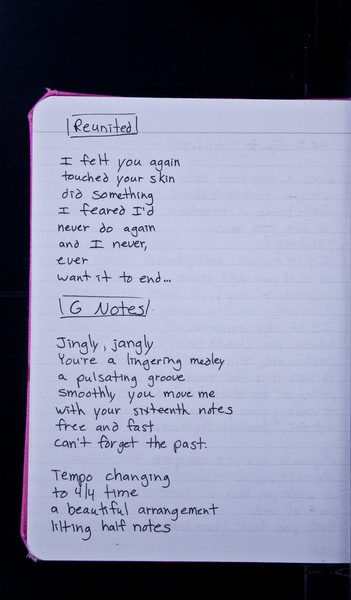 Reunited
I felt you again
touched your skin
did something
I feared I'd
never do again
and I never,
ever
want it to end...
G Notes
Jingly, jangly
You're a lingering medley
a pulsating groove
smoothly you move me
with your sixteenth notes
free and fast
can't forget the past.
Tempo changing
to 4/4 time
a beautiful arrangement
lilting half notes